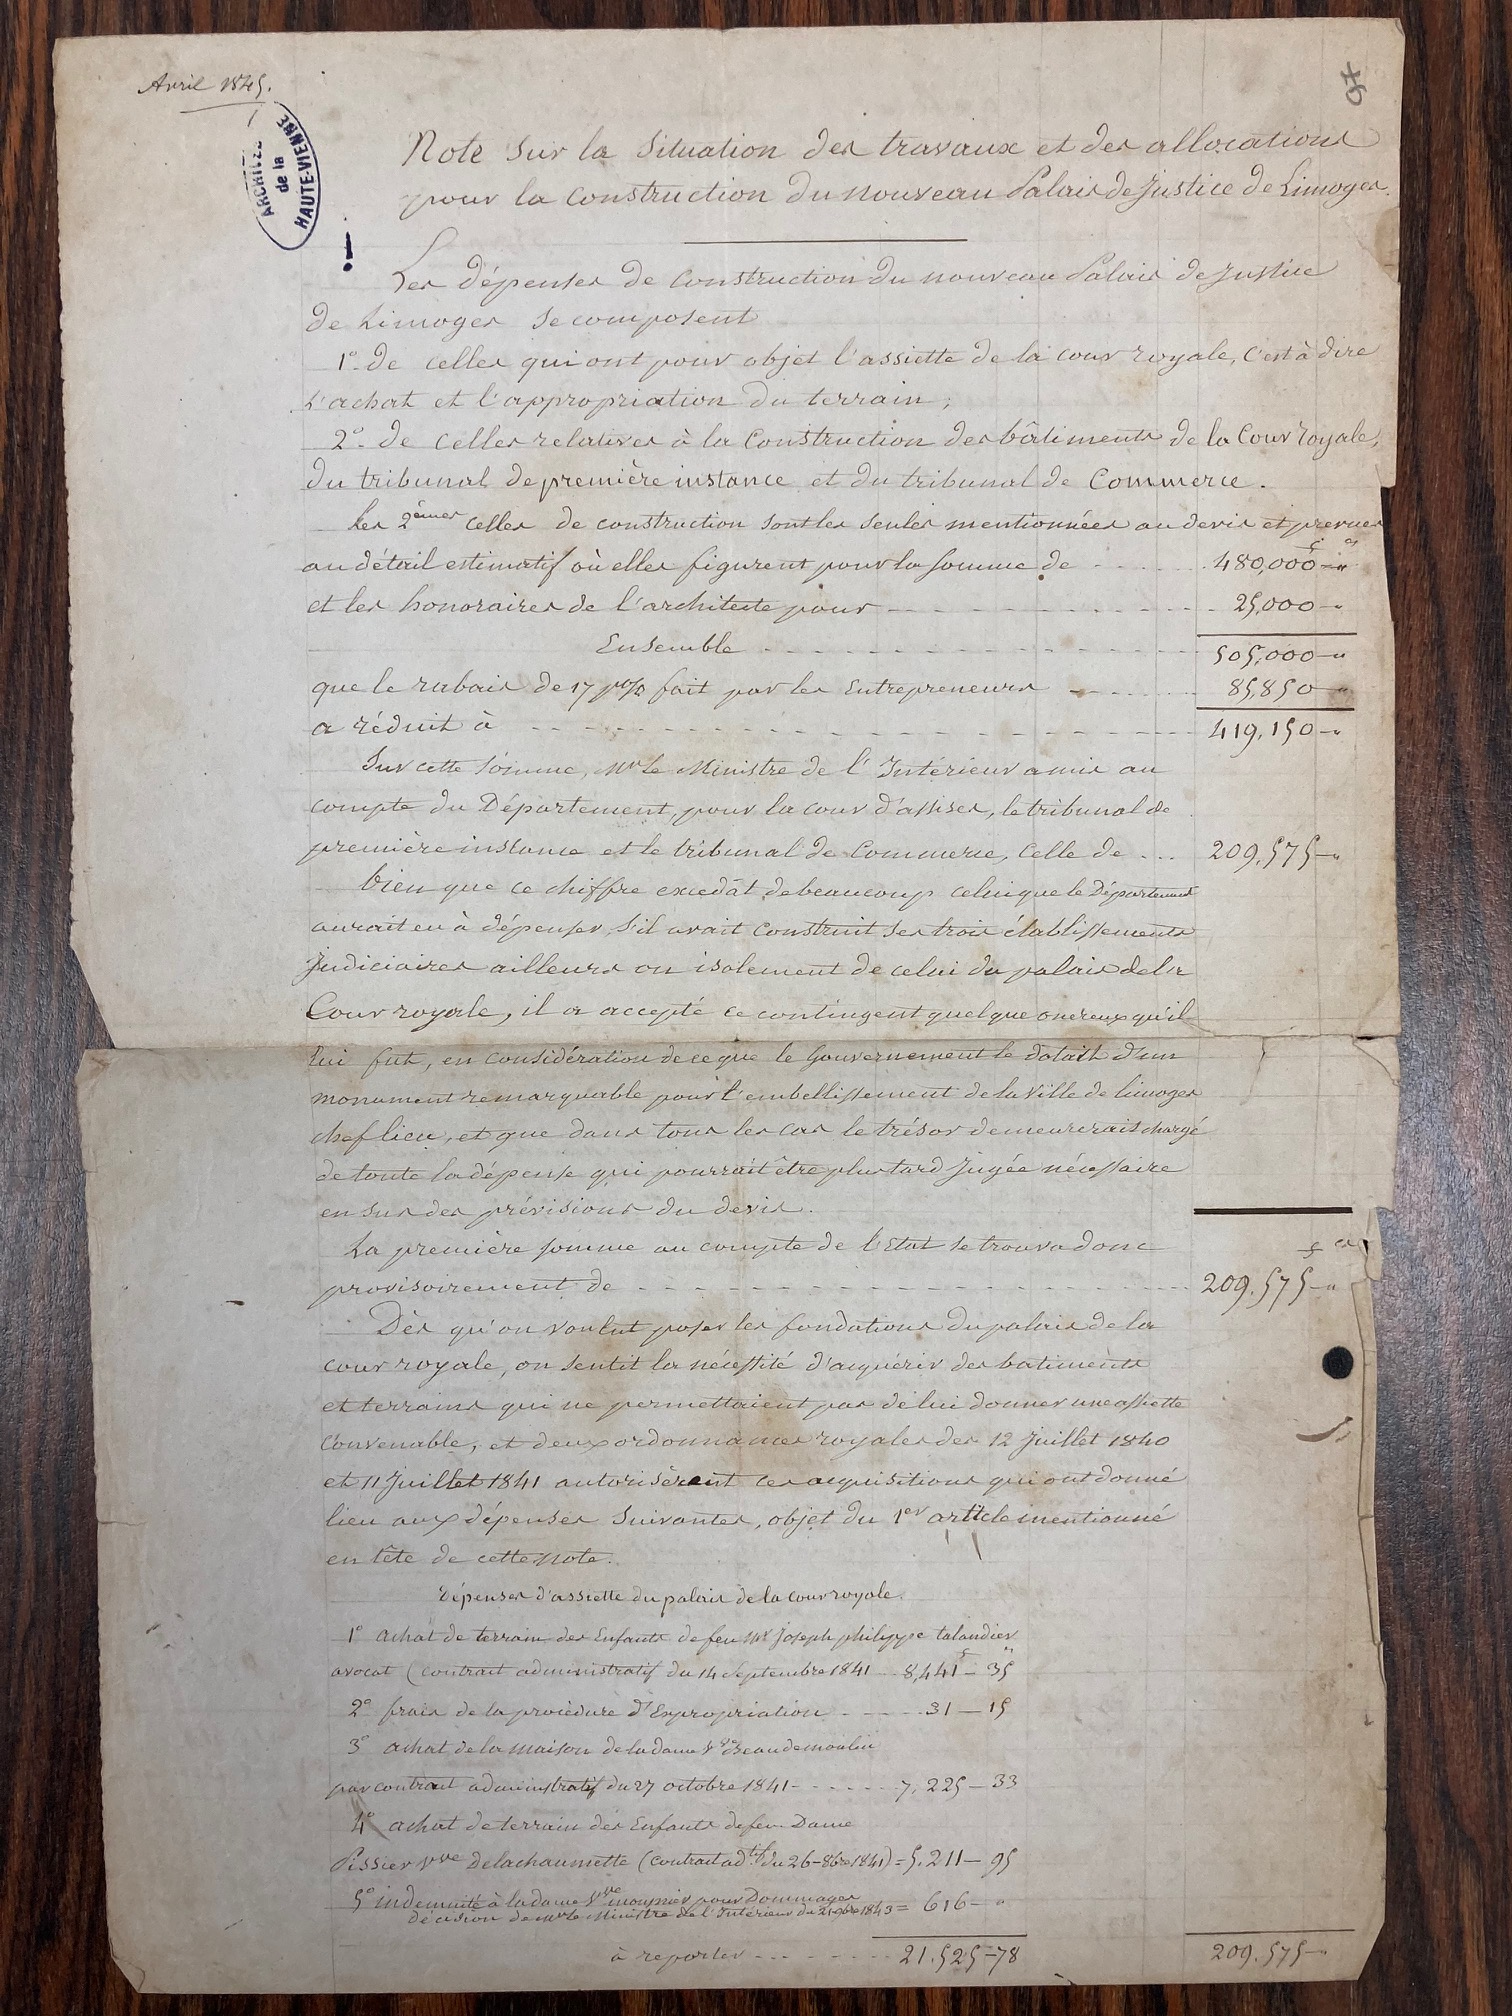 Avril 1845.
ARCHIVES
de la
HAUTE-VIENNE
Note sur la situation des travaux et des allocations
pour la construction du nouveau Palais de Justice de Limoges.
Les dépenses de construction du nouveau Palais de Justice
de Limoges se composent
1° de celles qui ont pour objet l'assiette de la cour royale, c'est à dire
l'achat et l'appropriation du terrain;
2° de celles relatives à la Construction des bâtiments de la Cour royale,
du tribunal de première instance et du tribunal de Commerce.
Les 2èmes celles de construction sont les seules mentionnées au devis et prévues
au détail estimatif où elles figurent pour la somme de - - - - - 480,000 f - " cs
et les honoraires de l'architecte pour - - - - - - - - - 25,000 - "
Ensemble - - - - - - - - - - 505,000 - "
que le rabais de 17 p% fait par les Entrepreneurs - - - - - 85,850 - "
a réduit à - - - - - - - - - - - - - - 419,150 - "
Sur cette somme, Mr le Ministre de l'Intérieur a mis au
compte du Département, pour la cour d'assises, le tribunal de
première instance et le tribunal de Commerce, celle de ... 209,575 - "
bien que ce chiffre excedât de beaucoup celui que le Département
aurait eu à dépenser s'il avait construit ses trois établissements
judiciaires ailleurs ou isolement de celui du palais de la
Cour royale, il a accepté ce contingent quelque onereux qu'il
lui fut, en considération de ce que le Gouvernement le dotait d'un
monument remarquable pour l'embellissement de la Ville de Limoges
chef lieu, et que dans tous les cas le trésor demeurerait chargé
de toute la dépense qui pourrait être plus tard jugée nécessaire
en sus des prévisions du devis.
La première somme au compte de l'Etat se trouva donc
provisoirement de - - - - - - - - - - - - 209.575 f - " cs
Dès qu'on voulut poser les fondations du palais de la
cour royale, on sentit la nécessité d'acquérir des batiments
et terrains qui ne permettaient pas de lui donner une assiette
convenable, et deux ordonnances royales des 12 Juillet 1840
et 11 Juillet 1841 autorisèrent ces acquisitions qui ont donné
lieu aux dépenses suivantes, objet du 1er article mentionné
en tête de cette note.
Dépenses d'assiette du palais de la cour royale.
1° achat de terrain des Enfants de feu Mr Joseph philippe talandier
avocat (contrat administratif du 14 Septembre 1841 - 8,441 f - 35 cs
2° frais de la procédure d'Expropriation - - - - - 31 - 15
3° achat de la maison de la dame Ve Beaudemoulin
par contrat administratif du 27 octobre 1841 - - - - - 7,225 - 33
4° achat de terrain des Enfants de feu Dame
Pissier Vve Delachaumette (contrat adtif du 26 - 8bre 1841) = 5.211 - 95
5° indemnité à la dame Vve mounier pour Dommages
décision de Mr le Ministre de l'Intérieur du 21 9bre 1843 = 616 - "
à reporter - - - - - 21.525 - 78 209.575 - "